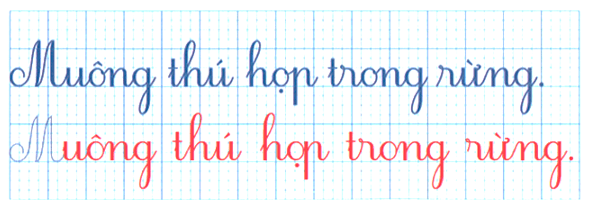 Muông thú họp trong rừng.
Muông thú họp trong rừng.